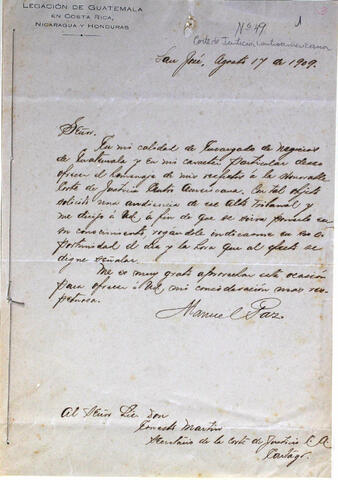 LEGACIÓN DE GUATEMALA
EN COSTA RICA,
NICARAGUA Y HONDURAS
Nº 49
1
Corte de Justicia Centroamericana
San José, Agosto 17 de 1909.
Señor.
En mi calidad de Encargado de Negocios
de Guatemala y en mi carácter particular deseo
ofrecer el homenaje de mis respetos á la Honorable
Corte de Justicia Centro Americana. Con tal objeto
solicito una audiencia de ese Alto Tribunal y
me dirijo á Ud. á fin de que se sirva ponerlo en
su conocimiento, rogándole indicarme en su o-
portunidad el día y la hora que al efecto se
digne señalar.
Me es muy grato aprovechar esta ocasión
para ofrecer á Ud. mi consideración mas res-
petuosa.
Manuel Paz
Al Señor Lic. Don
Ernesto Martín
Secretario de la Corte de Justicia C. A.
Cartago.